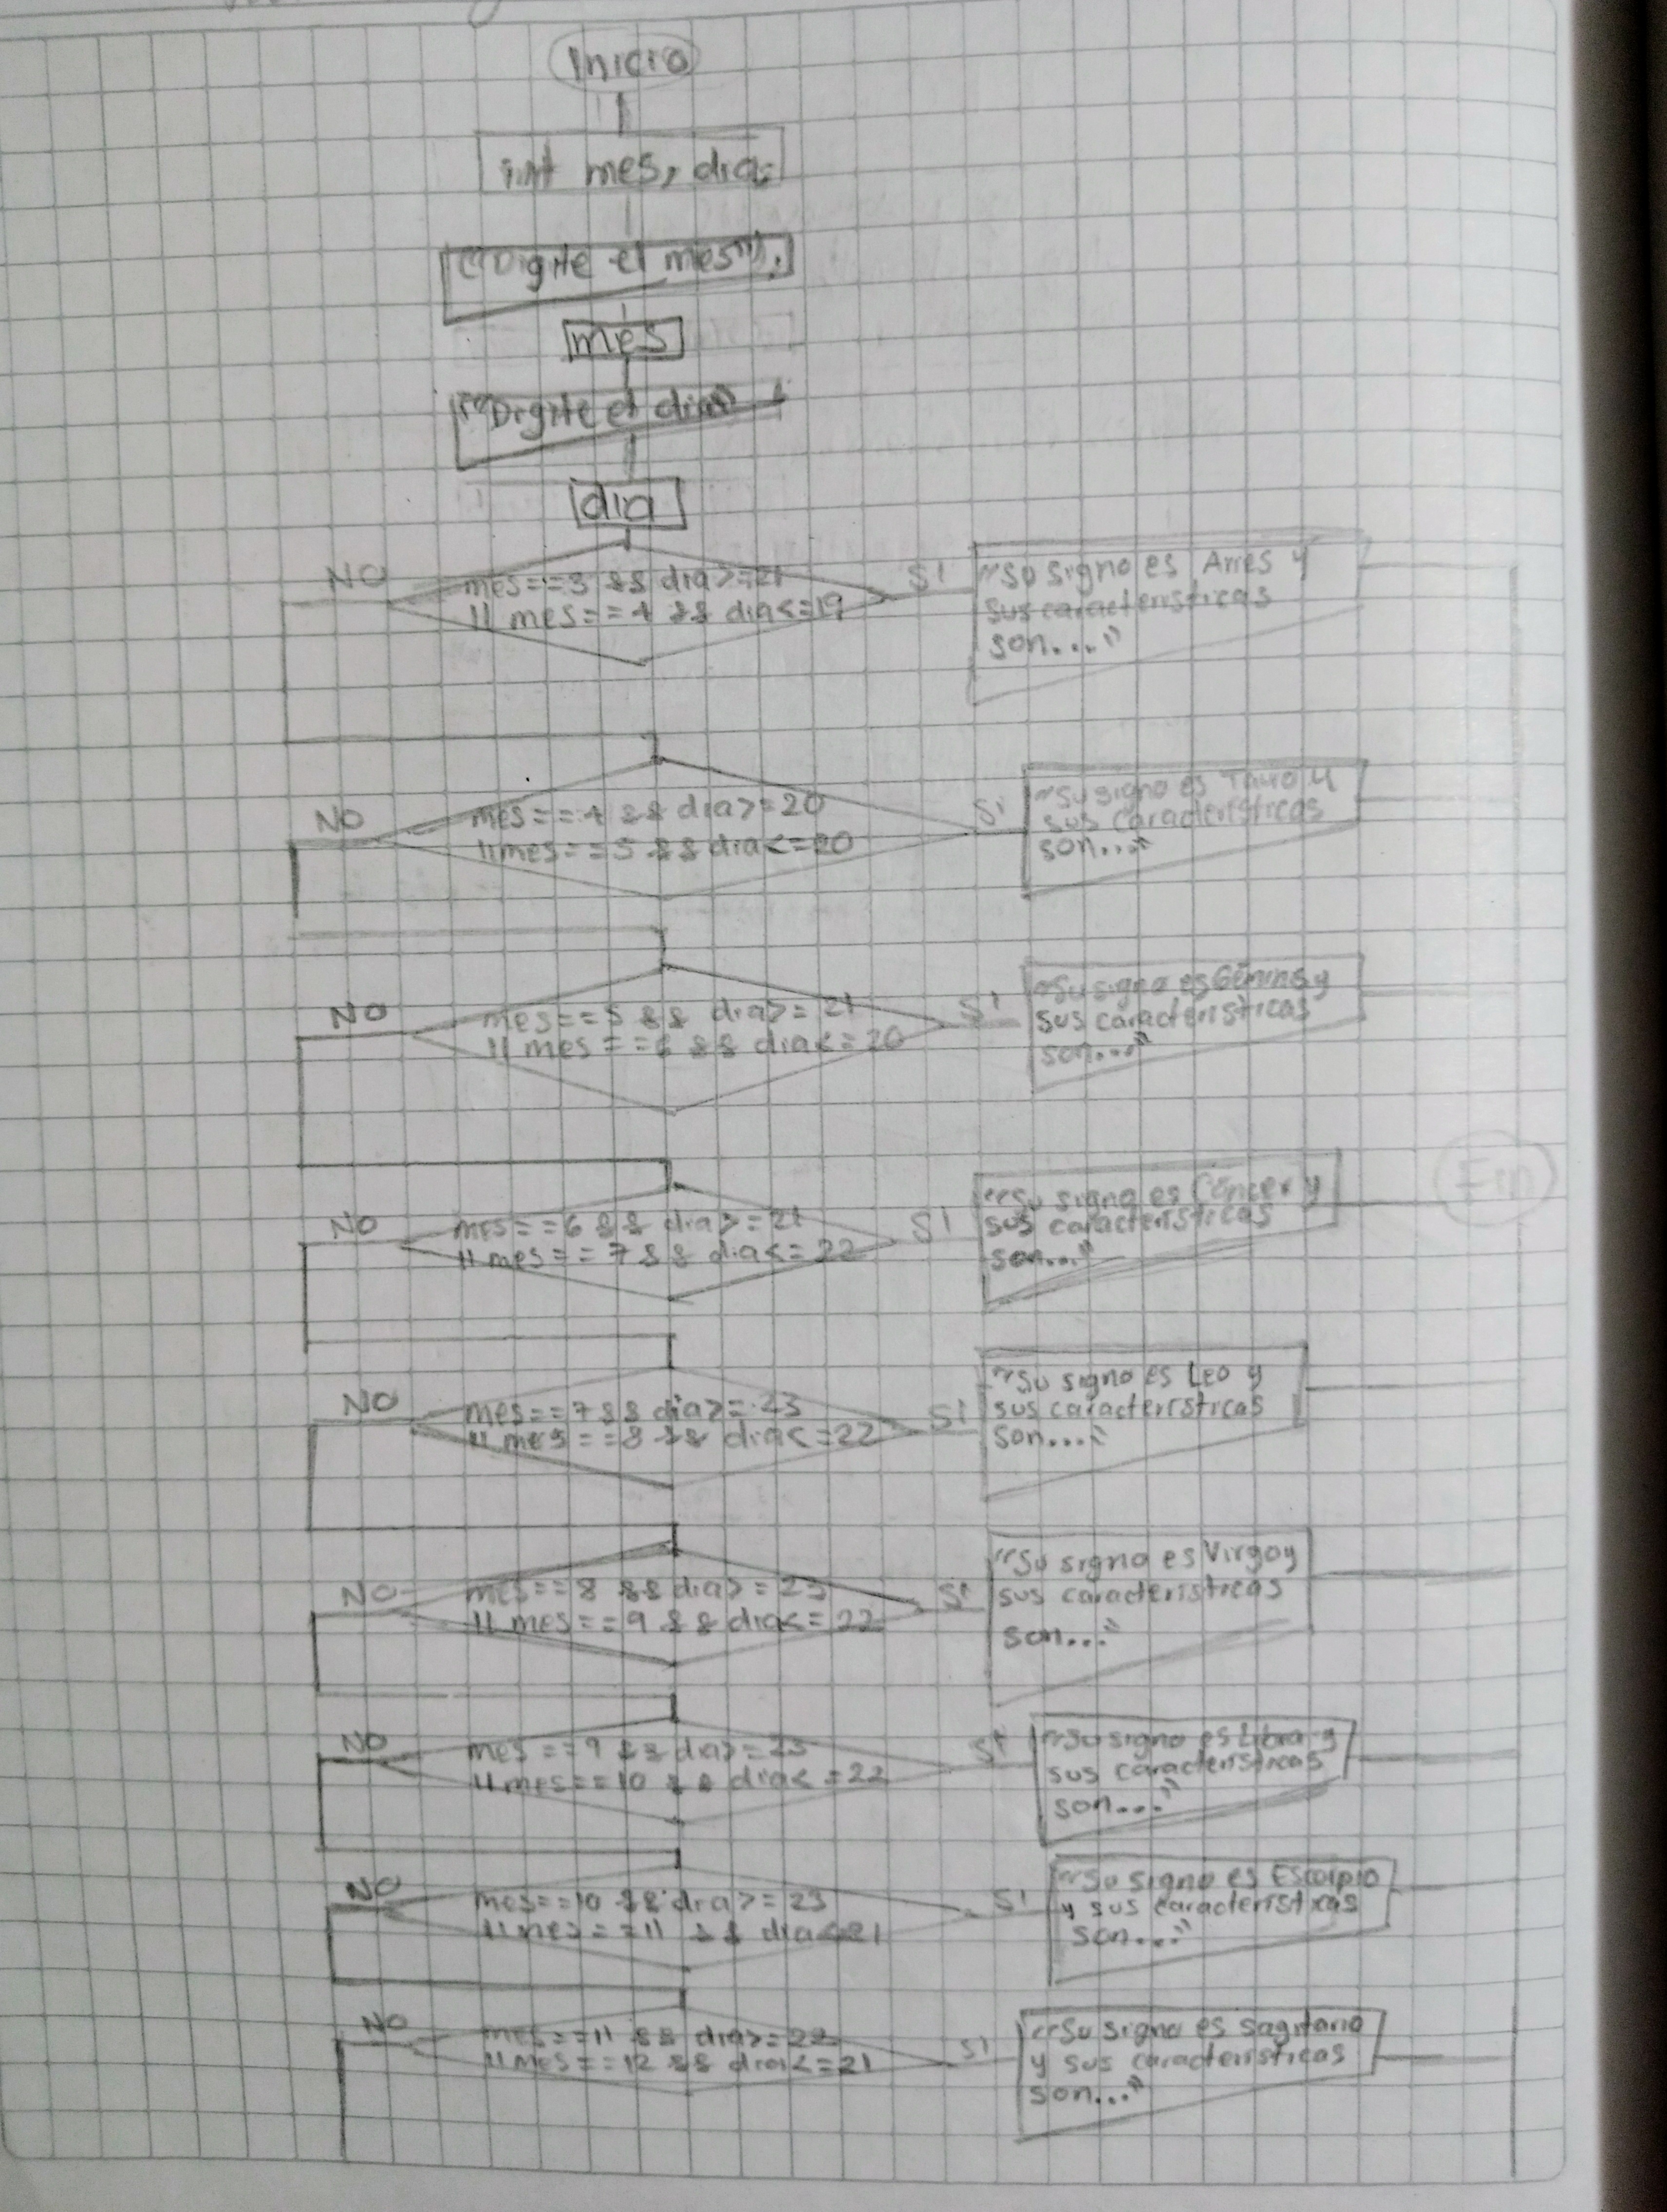 Inicio
int mes, dia;
("Digite el mes");
mes
("Digite el dia")
dia
NO
mes==3 && dia>=21
|| mes==4 && dia<=19
SI
"Su signo es Aries y
sus características
son...."
NO
mes==4 && dia>=20
||mes==5 && dia<=20
Si
"Su signo es Tauro y
sus características
son...."
NO
mes==5 && dia>=21
|| mes==6 && dia<=20
SI
"Su signo es Géminis y
sus características
son...."
Fin
NO
mes==6 && dia>=21
|| mes==7 && dia<=22
SI
"Su signo es Cáncer y
sus características
son..."
NO
mes==7 && dia>=23
|| mes==8 && dia<=22
SI
"Su signo es Leo y
sus características
son...."
NO
mes==8 && dia>=23
|| mes==9 && dia<=22
SI
"Su signo es Virgo y
sus características
son..."
NO
mes==9 && dia>=23
||mes==10 && dia<=22
SI
"Su signo es Libra y
sus características
son...."
NO
mes==10 && dia>=23
||mes==11 && dia<21
SI
"Su signo es Escorpio
y sus características
son...."
NO
mes==11 && dia>=22
||mes==12 && dia<=21
SI
"Su signo es sagitario
y sus características
son..."